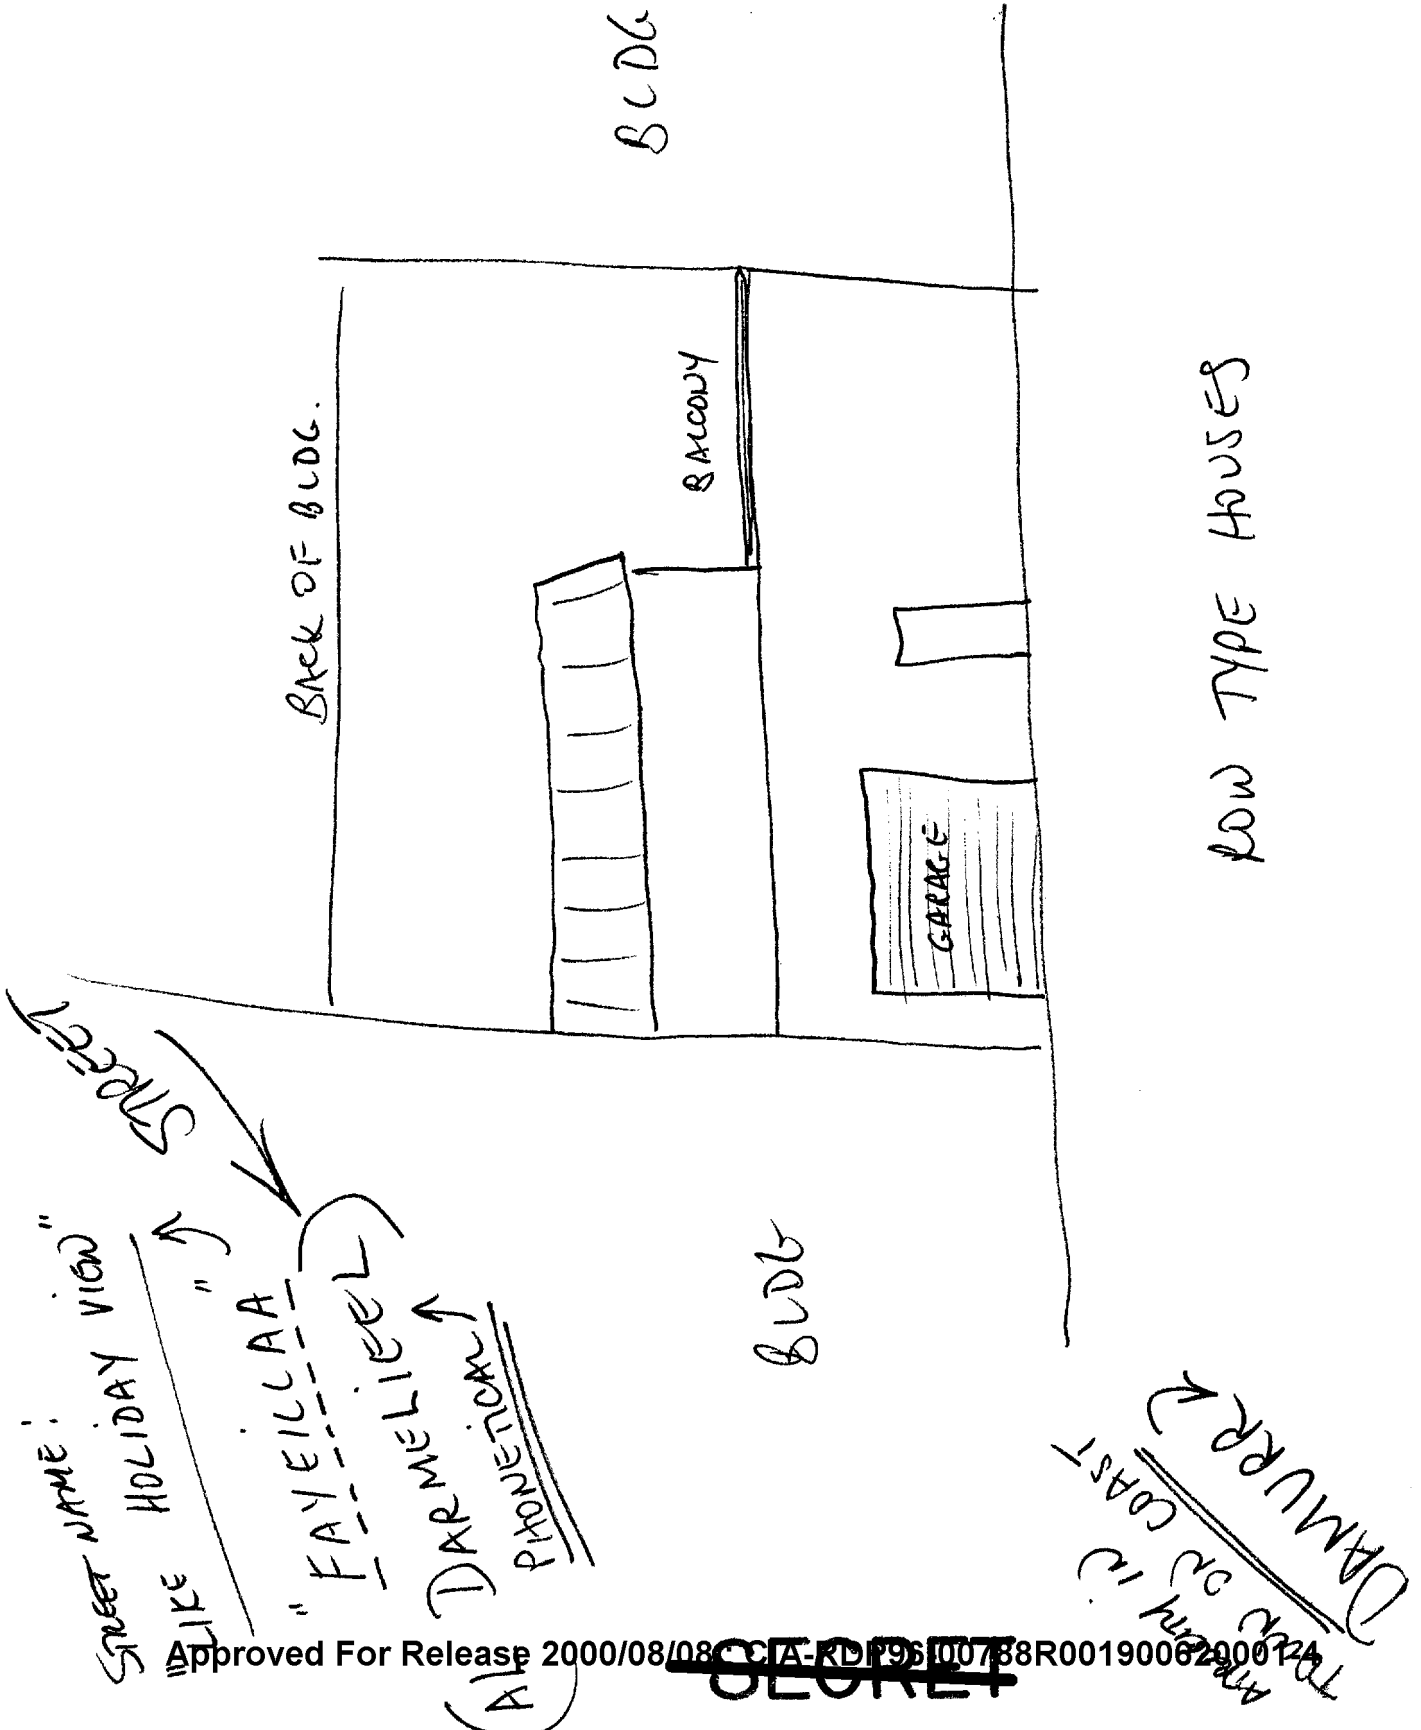 BLDG
BACK OF BLDG.
BALCONY
GARAGE
ROW TYPE HOUSES
BLDG
STREET
STREET NAME:
"LIKE HOLIDAY VIEW"
"FAYEILLAA"
(AL) DARMELIEEL
PHONETICAL
CITY IN
OR ON COAST
DAMURR
Approved For Release 2000/08/08 : CIA-RDP96-00788R001900620001-4
SECRET